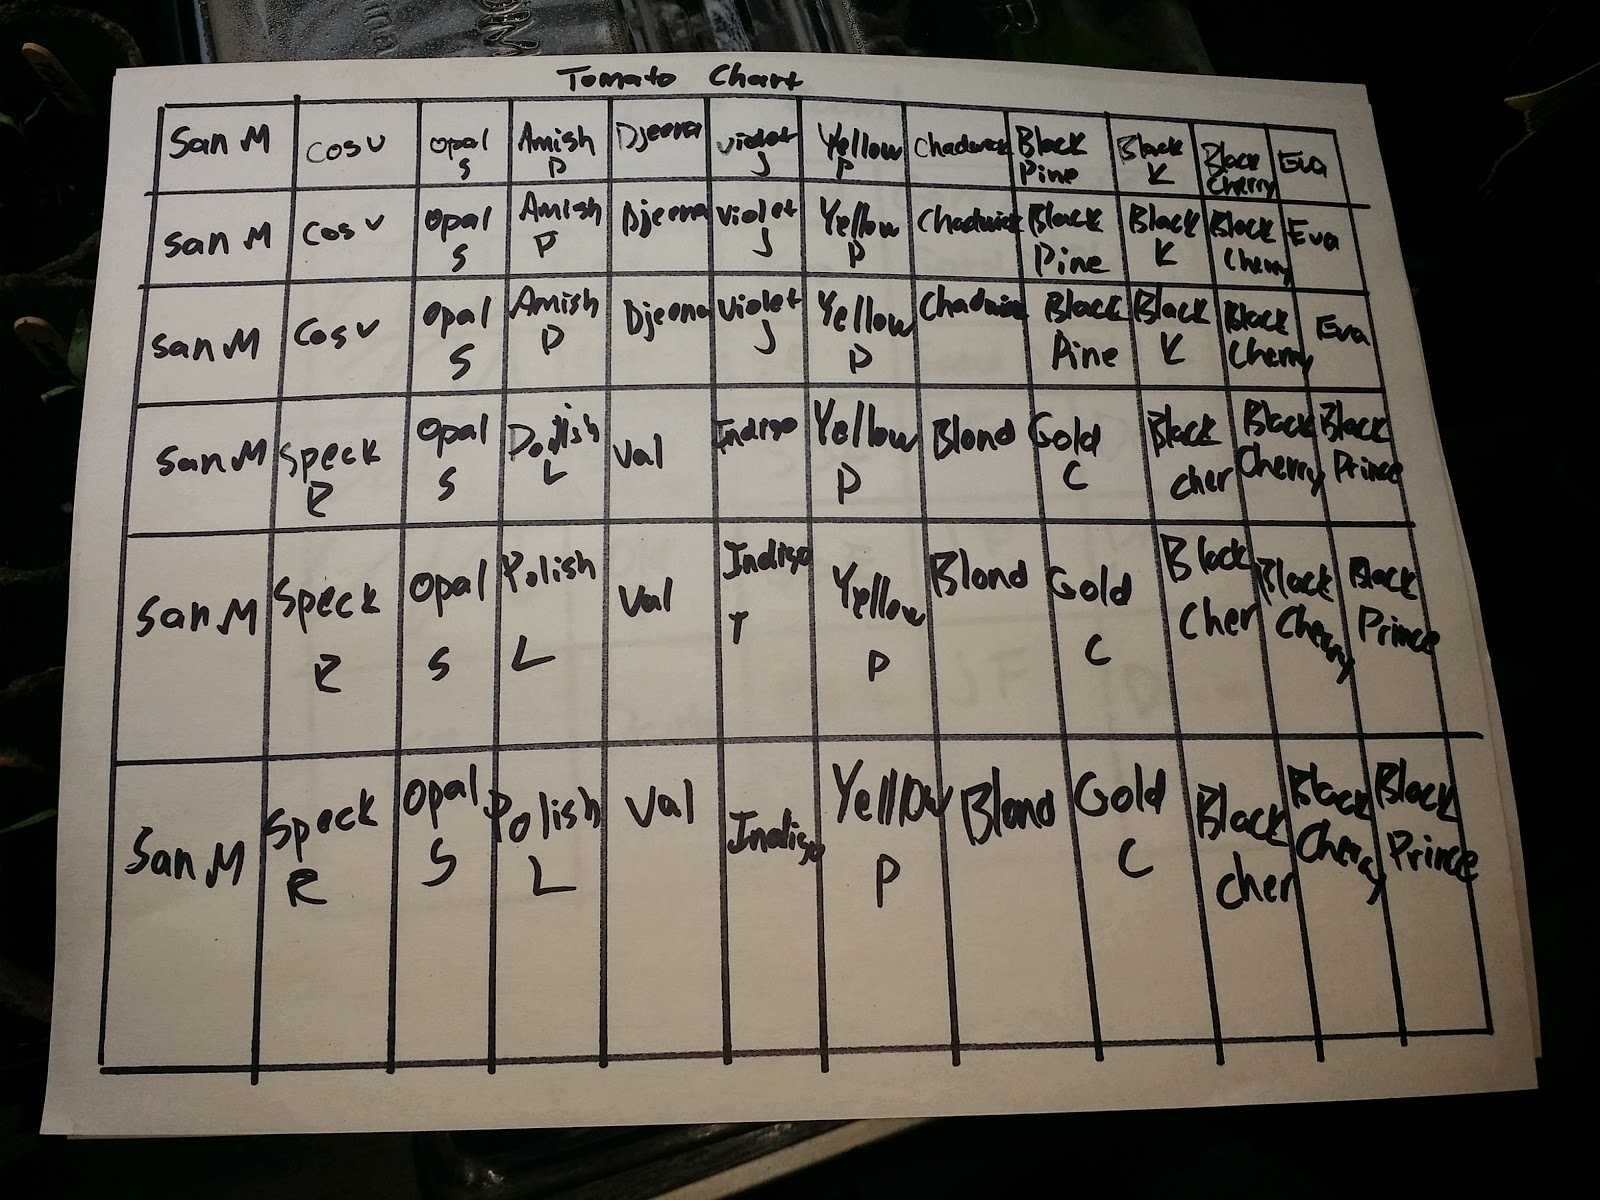 Tomato Chart
San M Cos V Opal S Amish P Djeena Violet J Yellow P Chadwick Black Pine Black K Black Cherry Eva
San M Cos V Opal S Amish P Djeena Violet J Yellow P Chadwick Black Pine Black K Black Cherry Eva
San M Cos V Opal S Amish P Djeena Violet J Yellow P Chadwick Black Pine Black K Black Cherry Eva
San M Speck R Opal S Polish L Val Indigo Yellow P Blond Gold C Black cher Black Cherry Black Prince
San M Speck R Opal S Polish L Val Indigo T Yellow P Blond Gold C Black Cher Black Cherry Black Prince
San M Speck R Opal S Polish L Val Indigo Yellow P Blond Gold C Black cher Black Cherry Black Prince